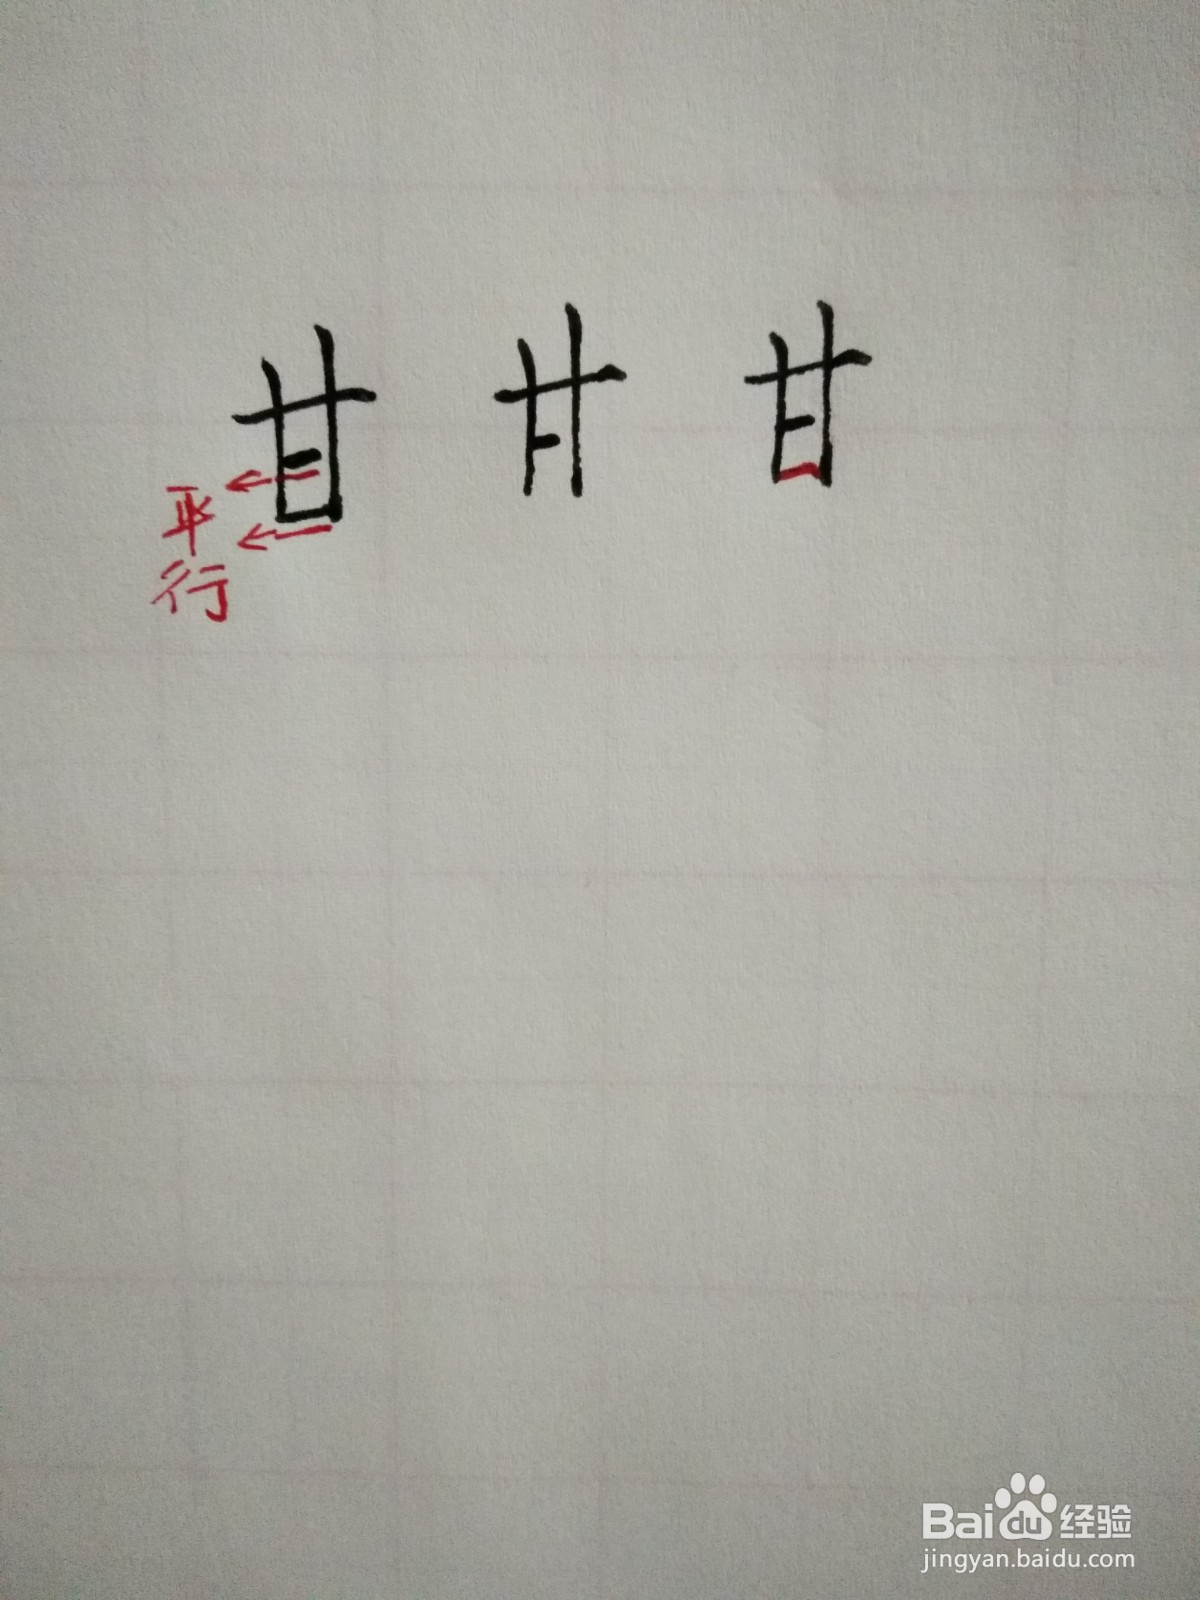 甘 甘 甘
平
行
Baidu经验
jingyan.baidu.com